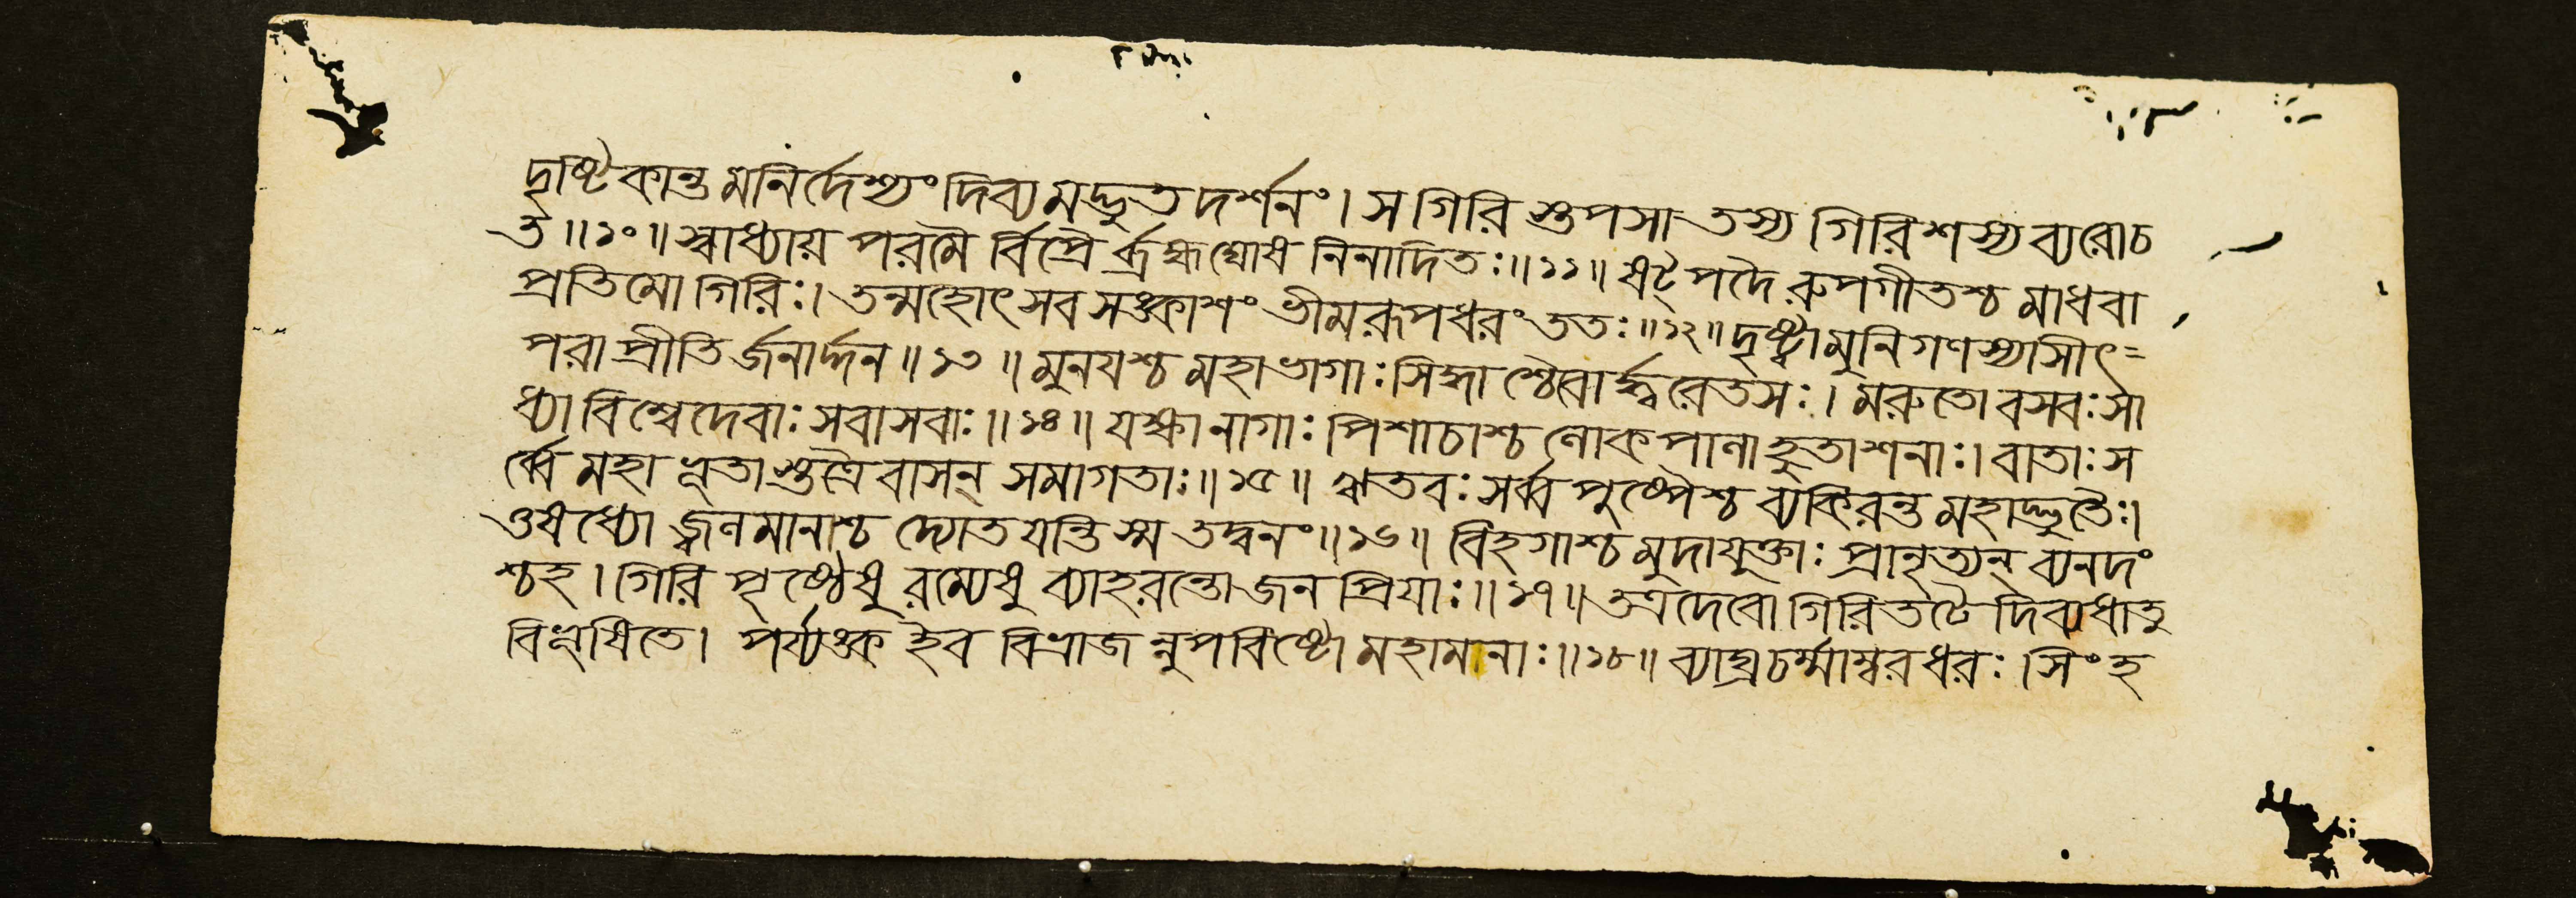 দৃষ্টিকান্তমনির্দেশ্যং দিব্যমদ্ভুতদর্শনং। স গিরিস্তপসা তস্য গিরিশস্য ব্যরোচ
ত॥১০॥ স্বাধ্যায় পরমৈর্বিপ্রৈর্ব্রহ্মঘোষ নিনাদিতঃ॥১১॥ ষট্পদৈরুপগীতশ্চ মাধবা
প্রতিমো গিরিঃ। তন্মহোৎসব সঙ্কাশং ভীমরূপধরং ততঃ॥১২॥ দৃষ্ট্বা মুনিগণস্যাসীৎ=
পরা প্রীতির্জনার্দ্দন॥১৩॥ মুনযশ্চ মহাভাগাঃ সিদ্ধাশ্চৈবোর্দ্ধ্বরেতসঃ। মরুতো বসবঃ সা
ধ্যা বিশ্বেদেবাঃ সবাসবাঃ॥১৪॥ যক্ষা নাগাঃ পিশাচাশ্চ লোকপালা হুতাশনাঃ। বাতাঃ স
র্ব্বে মহাভূতাস্তত্রৈবাসন্ সমাগতাঃ॥১৫॥ ঋতবঃ সর্ব্বপুষ্পৈশ্চ ব্যকিরন্ত মহাদ্ভুতৈঃ।
ওষধ্যো জ্বলমানাশ্চ দ্যোতযন্তি স্ম তদ্বনং॥১৬॥ বিহগাশ্চ মুদাযুক্তাঃ প্রানৃত্যন্ ব্যনদং
শ্চহ। গিরিপৃষ্ঠেষু রম্যেষু ব্যাহরন্তো জনপ্রিযাঃ॥১৭॥ তত্র দেবো গিরিতটে দিব্যধাতু
বিভূষিতে। পর্য্যঙ্ক ইব বিভ্রাজন্নুপবিষ্টো মহামানাঃ॥১৮॥ ব্যাঘ্রচর্ম্মাম্বরধরঃ। সিংহ